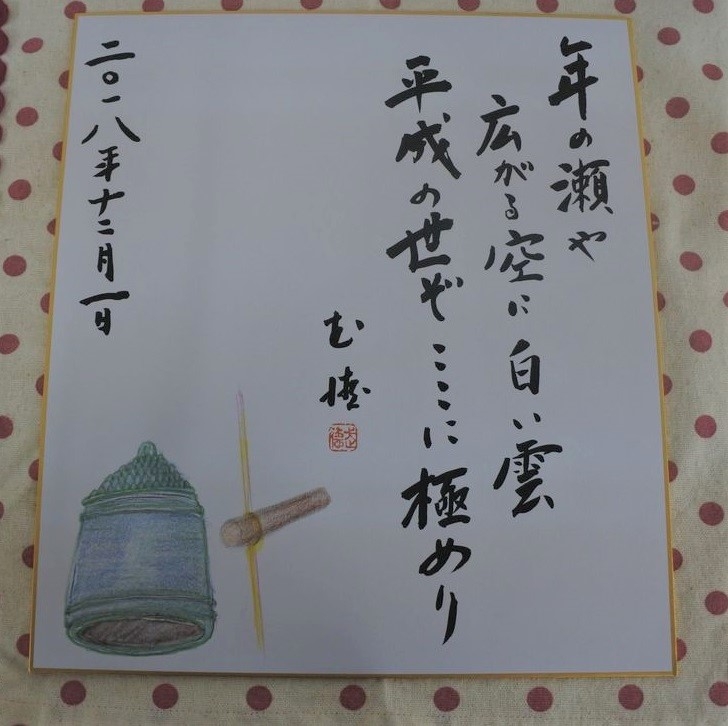 年の瀬や
広がる空に白い雲
平成の世ぞここに極めり
二〇一八年十二月一日